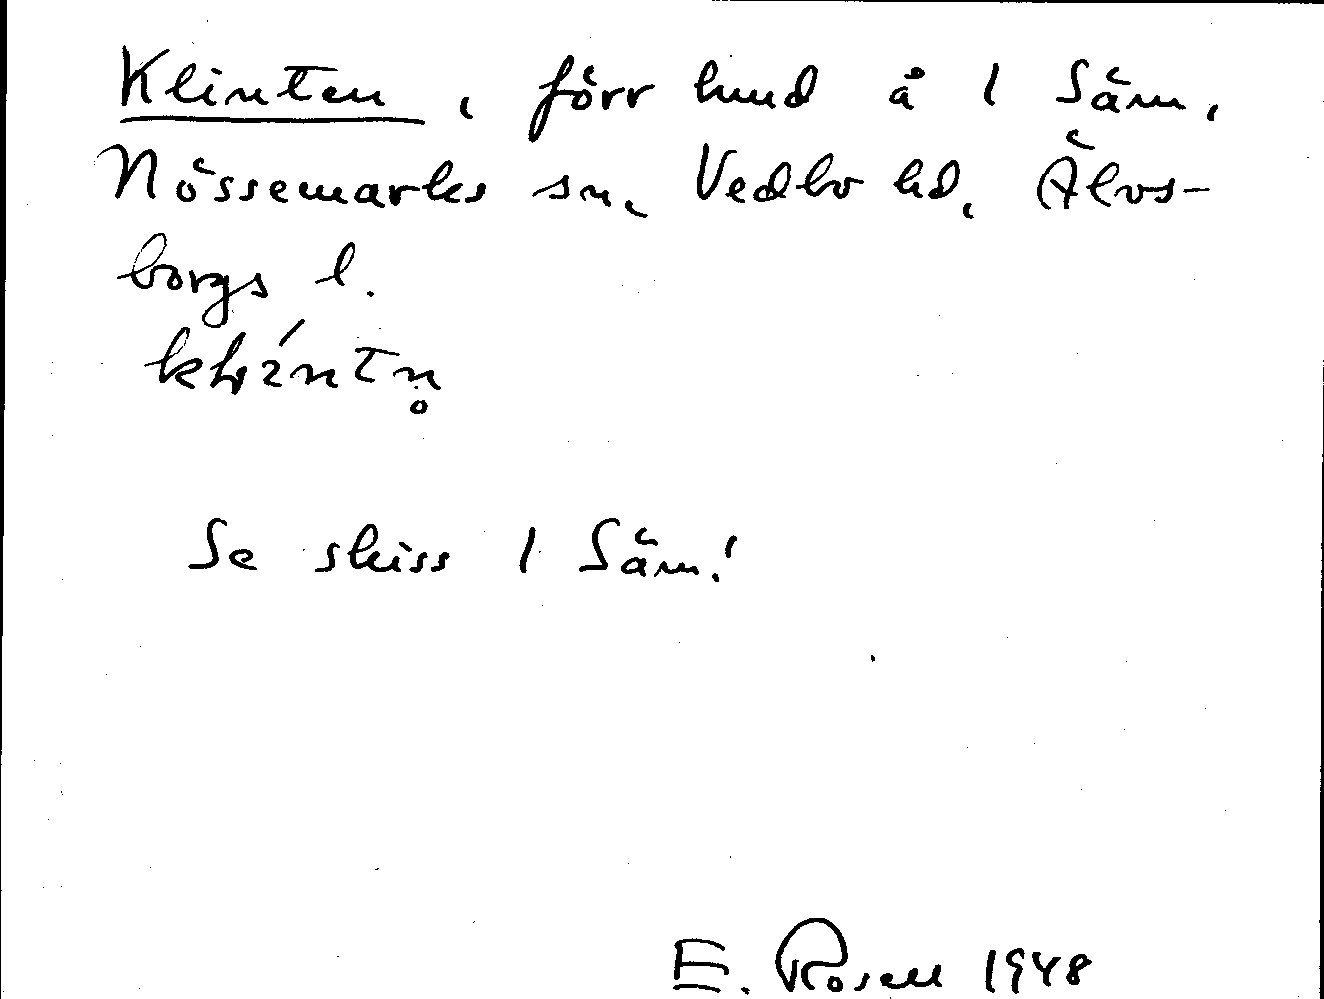 Klinten, förr lund å 1 Säm,
Nössemarks sn, Vedbo hd, Älvs-
borgs l.
Se skiss 1 Säm!
E. Rosell 1948